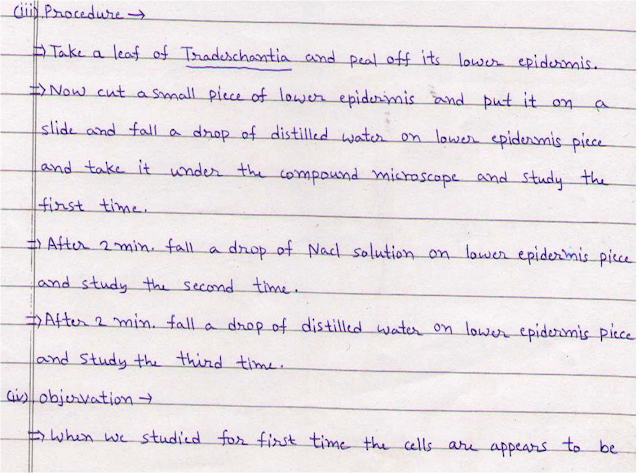 (iii) Procedure →
⇒ Take a leaf of Tradeschantia and peal off its lower epidermis.
⇒ Now cut a small piece of lower epidermis and put it on a
slide and fall a drop of distilled water on lower epidermis piece
and take it under the compound microscope and study the
first time.
⇒ After 2 min. fall a drop of Nacl solution on lower epidermis piece
and study the second time.
⇒ After 2 min. fall a drop of distilled water on lower epidermis piece
and study the third time.
(iv) objervation →
⇒ When we studied for first time the cells are appears to be